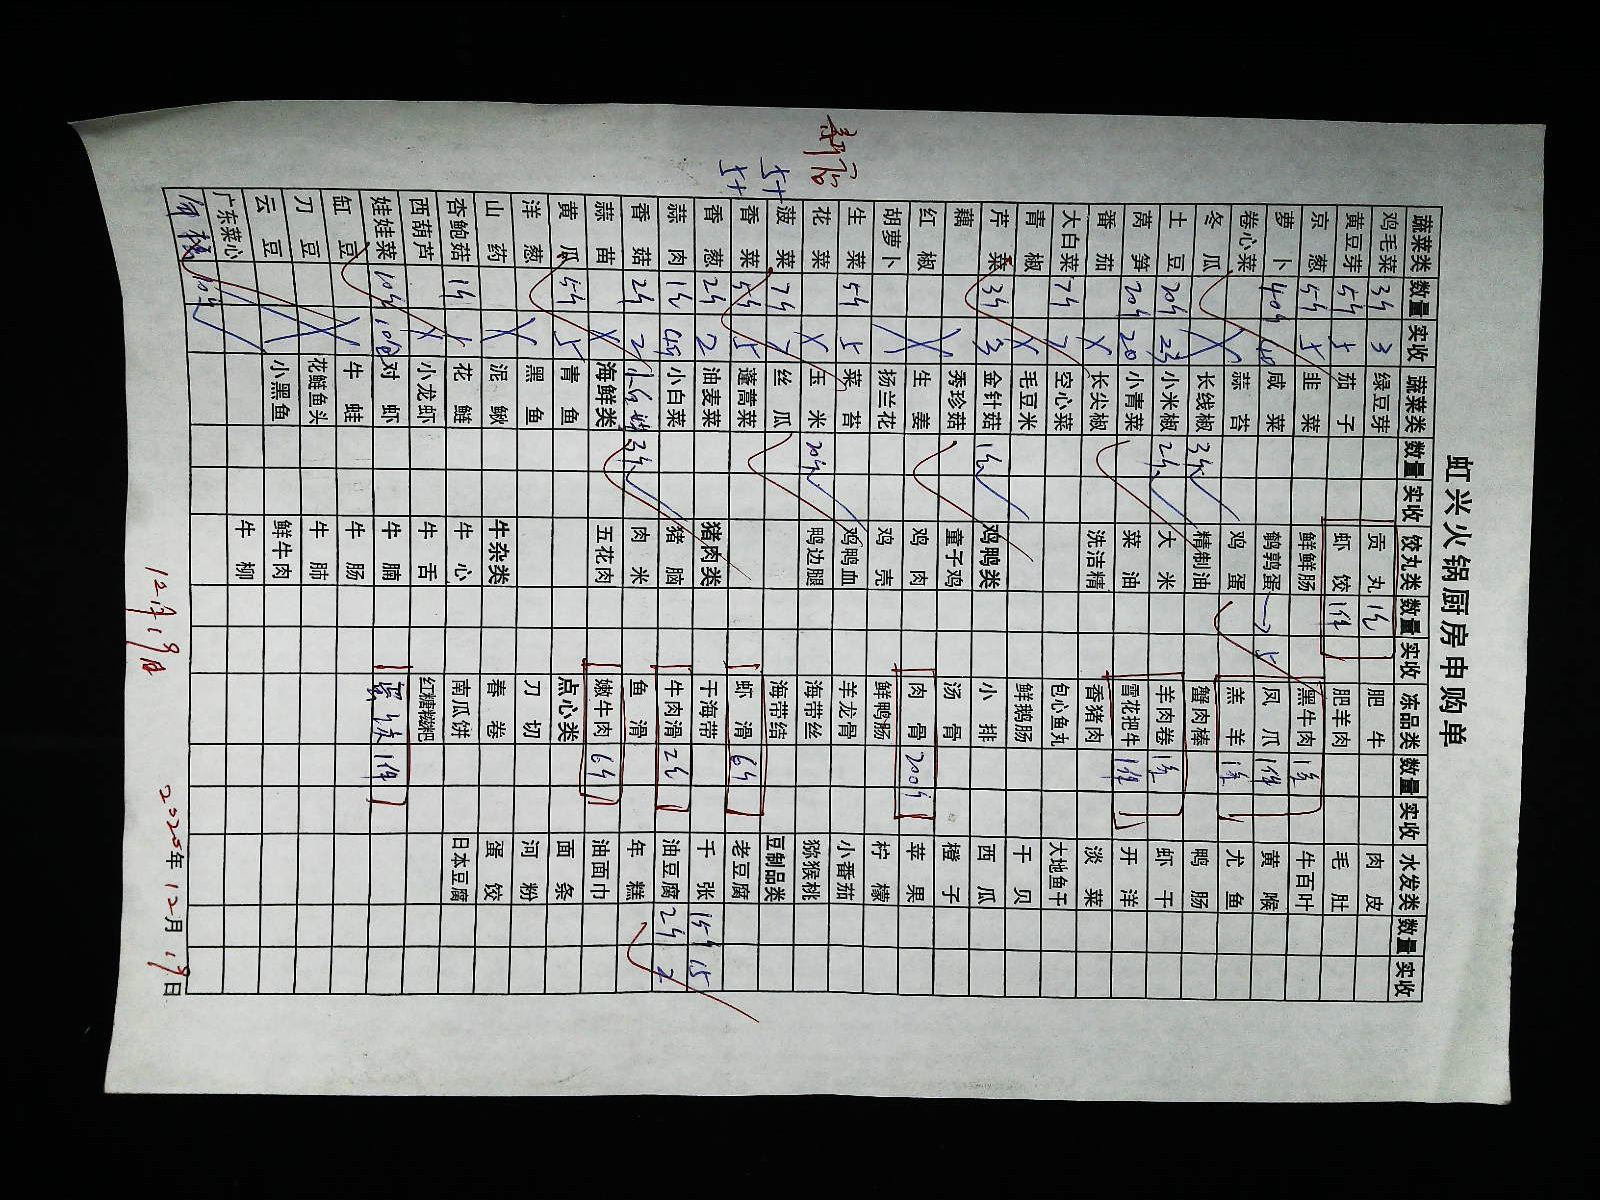 虹兴火锅厨房申购单
新店
蔬菜类 数量 实收 蔬菜类 数量 实收 饺丸类 数量 实收 冻品类 数量 实收 水发类 数量 实收
鸡毛菜 3斤 3 绿豆芽 贡丸 1包 肥牛 肉皮
黄豆芽 5斤 5 茄子 虾饺 1件 肥羊肉 毛肚
京葱 5斤 5 韭菜 鲜鲜肠 黑牛肉 1包 牛百叶
萝卜 40斤 40 咸菜 鹌鹑蛋 → 5 凤爪 1件 黄喉
卷心菜 蒜苔 鸡蛋 羔羊 1包 尤鱼
冬瓜 长线椒 3斤 精制油 蟹肉棒 鸭肠
土豆 20斤 23 小米椒 2斤 大米 羊肉卷 1包 虾干
莴笋 20斤 20 小青菜 菜油 雪花把牛 1件 开洋
番茄 长尖椒 洗洁精 香猪肉 淡菜
大白菜 7斤 7 空心菜 包心鱼丸 大地鱼干
青椒 毛豆米 鲜鹅肠 干贝
芹菜 3斤 3 金针菇 1包 鸡鸭类 小排 西瓜
藕 秀珍菇 童子鸡 汤骨 橙子
红椒 生姜 鸡肉 肉骨 200斤 苹果
胡萝卜 扬兰花 鸡壳 鲜鸭肠 柠檬
生菜 5斤 5 菜苔 鸡鸭血 羊龙骨 小番茄
花菜 玉米 20斤 鸭边腿 海带丝 猕猴桃
5+ 菠菜 7斤 7 丝瓜 海带结 豆制品类
5+ 香菜 5斤 5 蓬蒿菜 虾滑 6斤 老豆腐
香葱 2斤 2 油麦菜 猪肉类 干海带 千张 15斤 15
蒜肉 1包 小白菜 猪脑 牛肉滑 2包 油豆腐 2斤 2
香菇 2斤 2 3斤 肉米 鱼滑 年糕
蒜苗 海鲜类 五花肉 嫩牛肉 6斤 油面巾
黄瓜 5斤 5 青鱼 点心类 面条
洋葱 黑鱼 刀切 河粉
山药 泥鳅 牛杂类 春卷 蛋饺
杏鲍菇 1斤 花鲢 牛心 南瓜饼 日本豆腐
西葫芦 小龙虾 牛舌 红糖糍粑
娃娃菜 10斤 对虾 牛腩 1件
缸豆 牛蛙 牛肠
刀豆 花鲢鱼头 牛肺
云豆 小黑鱼 鲜牛肉
广东菜心 牛柳
10斤
12月19日 2020年12月19日